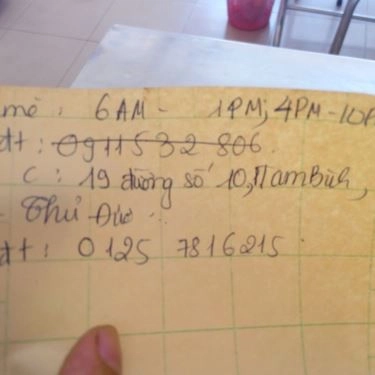 mẻ: 6AM - 1PM; 4PM-10P
đt: 0911532806.
C: 19 đường số 10, Tam Bình,
- Thủ Đức.
đt: 0125 7816215.